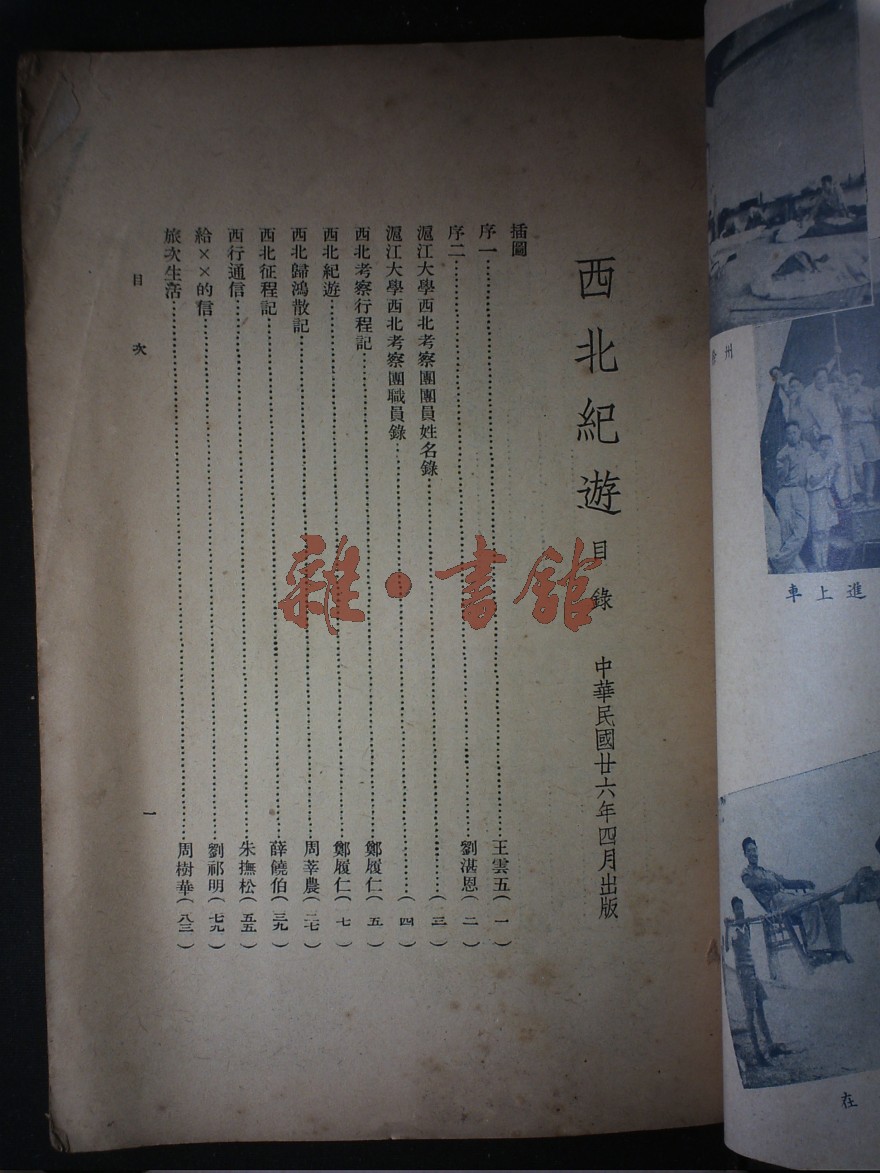 西北紀遊 目錄 中華民國廿六年四月出版
插圖
序一……王雲五(一)
序二……劉湛恩(二)
滬江大學西北考察團團員姓名錄……(三)
滬江大學西北考察團職員錄……(四)
西北考察行程記……鄭履仁(五)
西北紀遊……鄭履仁(七)
西北歸鴻散記……周莘農(二七)
西北征程記……薛饒伯(三九)
西行通信……朱撫松(五五)
給××的信……劉祁明(七九)
旅次生活……周樹華(八三)
目次
一
雜·書館
州
車上進
在